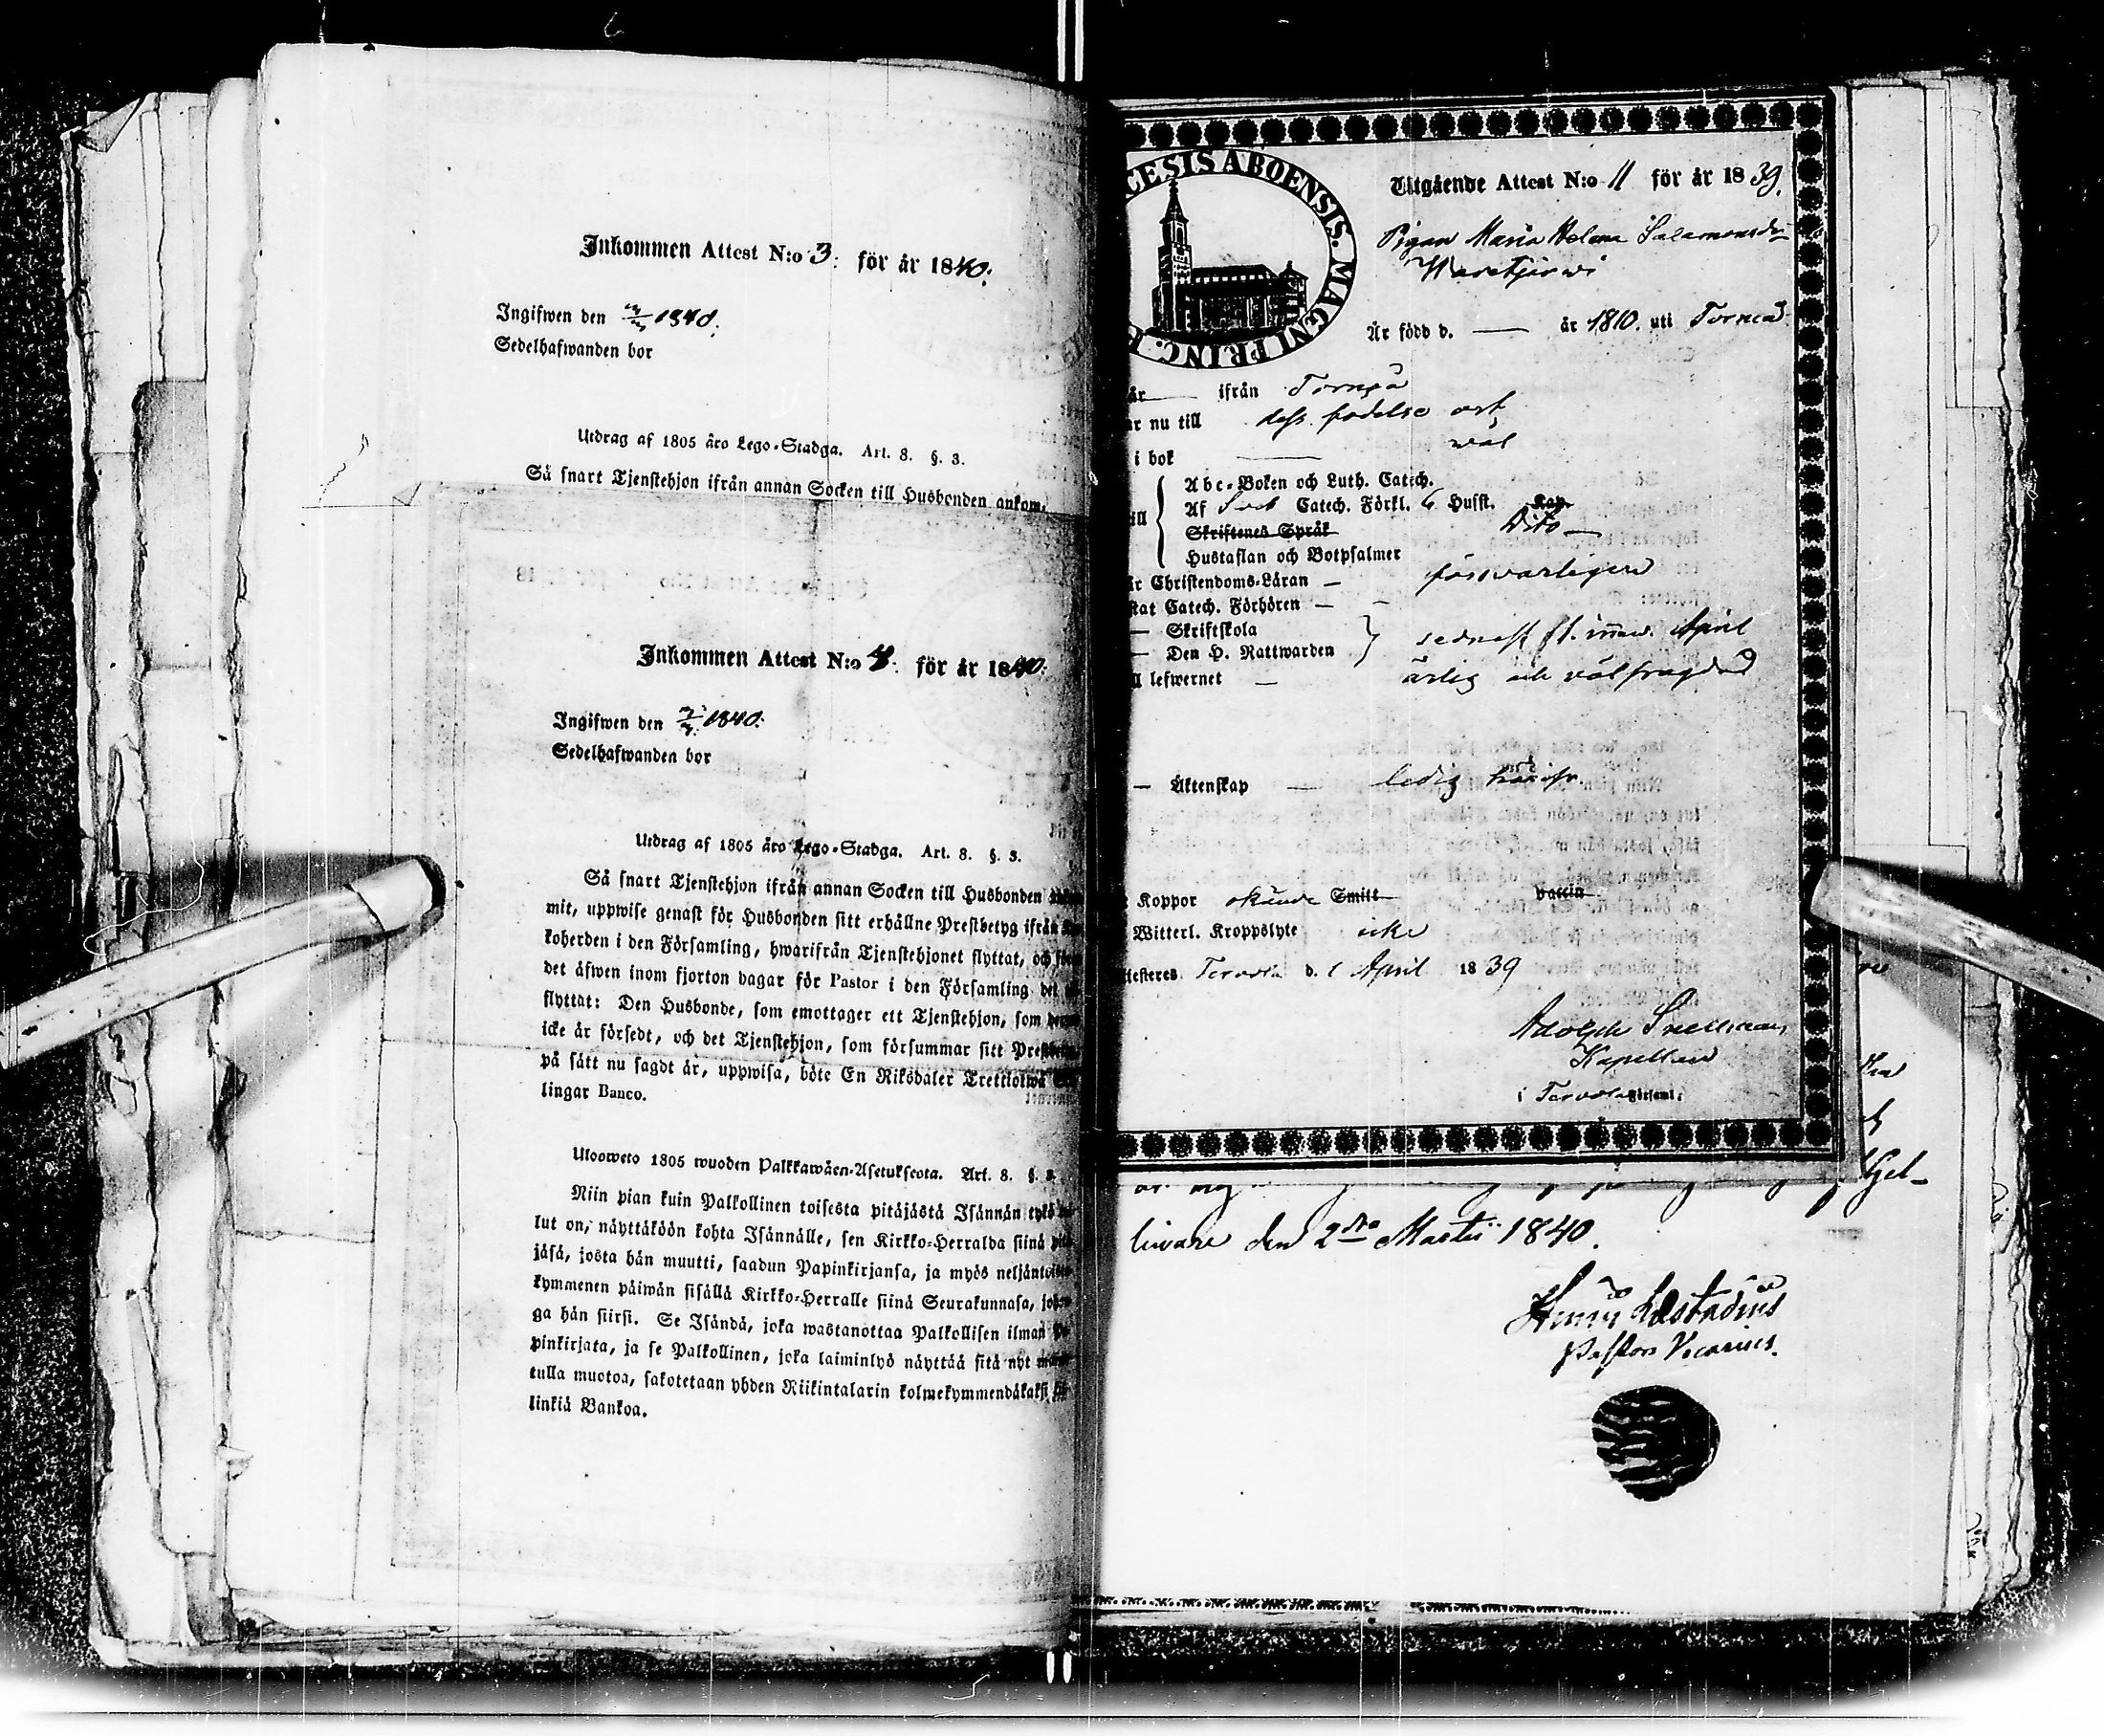 Inkommen Attest N:o 3. för år 1840.
Ingifwen den 1840.
Sedelhafwanden bor
Utdrag af 1805 åro Lego-Stadga. Art. 8. §. 3.
Så snart Tjenstehjon ifrån annan Socken till Husbonden ankom-
Inkommen Attest N:o 4. för år 1840.
Ingifwen den 1840.
Sedelhafwanden bor
Utdrag af 1805 åro Lego-Stadga. Art. 8. §. 3.
Så snart Tjenstehjon ifrån annan Socken till Husbonden
mit, uppwise genast för Husbonden sitt erhållne Prestbetyg ifrån
koherden i den Församling, hwarifrån Tjenstehjonet flyttat, och
det äfwen inom fjorton dagar för Pastor i den Församling det
flyttat: Den Husbonde, som emottager ett Tjenstehjon, som
icke är försedt, och det Tjenstehjon, som försummar sitt
på sätt nu sagdt är, uppwisa, böte En Riksdaler Trettiotwå
lingar Banco.
Ulosweto 1805 wuoden Palkkawäen-Asetuksesta. Art. 8. §. 3.
Niin pian kuin Palkollinen toisesta pitäjästä Isännän tykö
lut on, näyttäköön kohta Isännälle, sen Kirkko-Herralda siinä
jäsä, josta hän muutti, saadun Papinkirjansa, ja myös neljäntoista
kymmenen päiwän sisällä Kirkko-Herralle siinä Seurakunnasa, johon-
ga hän siirsi. Se Isändä, joka wastanottaa Palkollisen ilman
pinkirjata, ja se Palkollinen, joka laiminlyö näyttää sitä nyt
tulla muotoa, sakotetaan yhden Riikintalarin kolmekymmendäkaksi
linkiä Bankoa.
CESIS ABOENSIS. MAGNI PRINC.
Utgående Attest N:o 11 för år 1839.
Pigan Maria Helena Salamonsdr
Är född d. — år 1810. uti Torneå
år — ifrån Torneå
nu till dess födelse ort
i bok — wäl
Abc-Boken och Luth. Catech.
Af Sveb Catech. Förkl. 6 Husst. Kap.
Skriftenes Språk Dito —
Hustaflan och Botpsalmer
Christendoms-Läran — försvarligen
Catech. Förhören —
— Skriftskola
— Den H. Nattwarden sednast April
lefwernet — ärlig och välfrägdad
— Äktenskap — ledig
Koppor okunde Smitt vaccin
Witterl. Kroppslyte icke
Tervola d. 1 April 1839
Adolph Snellman
Kapellan
i Tervola Församl:
liware den 2dra Martii 1840.
Læstadius
Pastor Vicarius.